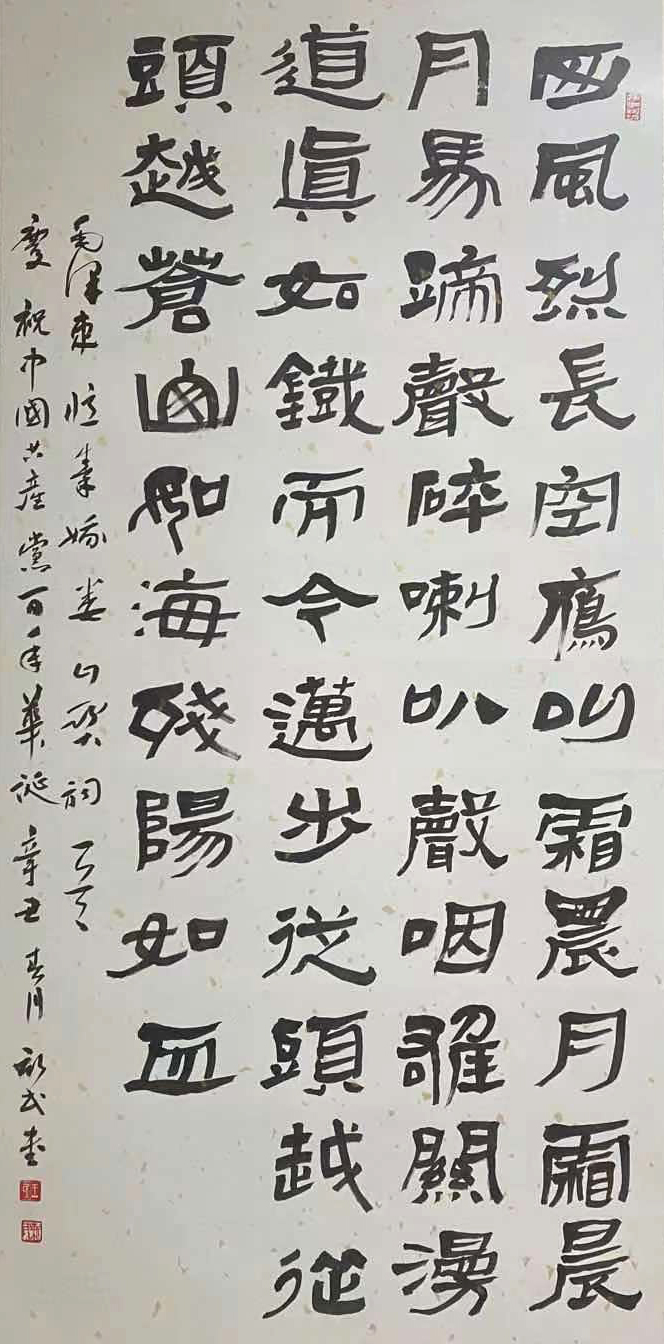 西風烈長空鴈叫霜晨月霜晨
月馬蹄聲碎喇叭聲咽雄關漫
道眞如鐵而今邁步從頭越從
頭越蒼山如海殘陽如血
毛澤東憶秦娥婁山關詞一首
慶祝中國共産黨百年華誕辛丑春月書